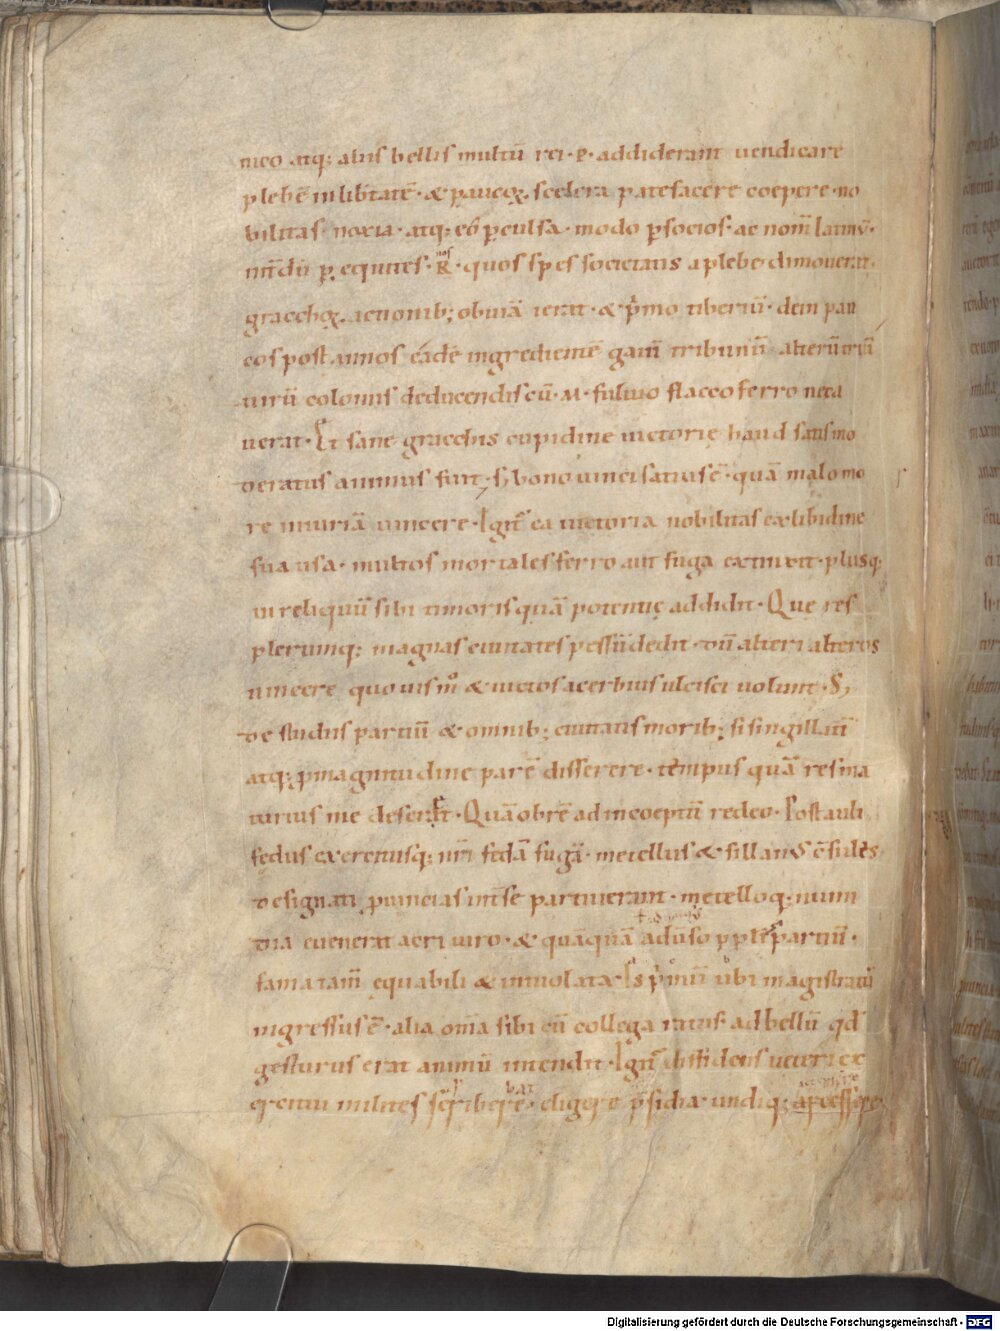 nico atq; aliis bellis multū rei · p · addiderant vendicare
plebē in lib̄tatē · & paucoꝝ scelera patefacere coepere · no
bilitas noxia · atq; eō ꝑculsa · modo ꝑ socios · ac nom̄ latinū ·
int̄dū ꝑ equites · R̄ · quos spes societatis a plebe dimouerat ·
gracchoꝝ actionib; obuiā ierat · & p̄mo tiberiū · dein pau
cos post annos eadē ingredientē gaiū tribunū alterū triū
uirū coloniis deducendis cū · M · fuluio flacco ferro neca
uerat · Et sane gracchis cupidine uictorię haud satis mo
deratus animus fuit · S; bono uinci satius ē · quā malo mo
re iniuriā uincere · Igit̄ ea uictoria nobilitas ex libidine
sua usa · multos mortales ferro aut fuga extinxit · plusq;
in reliquū sibi timoris quā potentię addidit · Que res
plerumq; magnas ciuitates pessū dedit · dū alteri alteros
uincere quo uis m̊ & uictos acerbius ulcisci uolunt · S;
de studiis partiū & omnib; ciuitatis morib; si singillatī
atq; ꝓ magnitudine parē disserere · tempus quā res ma
turius me deseret · Quā obrē ad inceptū redeo · Post auli
fedus exercitusq; nr̄i fedā fugā · metellus & sillanus c̄sules
designati ꝓuincias int̄ se partiuerant · metelloq; numi
dia euenerat acri uiro · & quāquā aduso p̄pli partiū ·
fama tam̄ equabili & inuiolata · Is p̄mū ubi magistratū
ingressus ē · alia om̄a sibi cū collega ratus · ad bellū qd̄
gesturus erat animū intendit · Igit̄ diffidens ueteri ex
ercitui milites scribere · eligere p̄sidia · undiq; arcessere
Digitalisierung gefördert durch die Deutsche Forschungsgemeinschaft - DFG